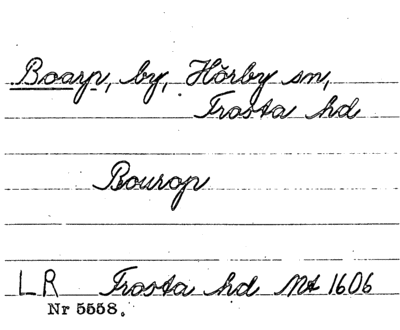 Boarp, by, Hörby sn,
Frosta hd
Bourop
LR Frosta hd Mt 1606
Nr 5558.